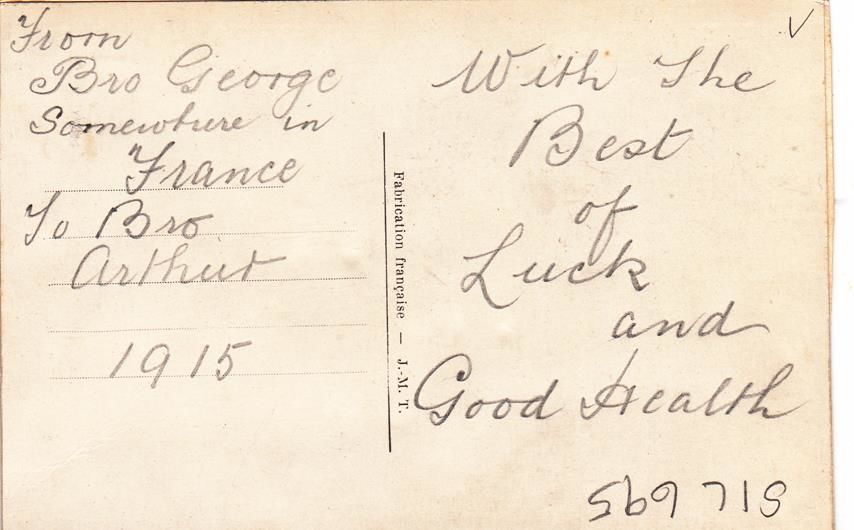 From
Bro George
Somewhere in
France
To Bro
Arthur
1915
Fabrication française — J.-M. T.
With The
Best
of
Luck
and
Good Health